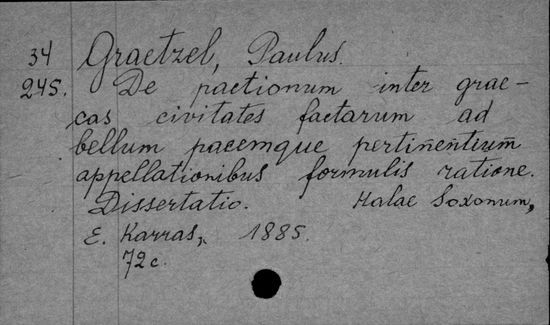 34 Graetzel, Paulus.
245. De pactionum inter grae-
cas civitates factarum ad
bellum pacemque pertinentium
appellationibus formulis ratione.
Dissertatio. Halae Soxonum,
E. Karras, 1885.
72 c.